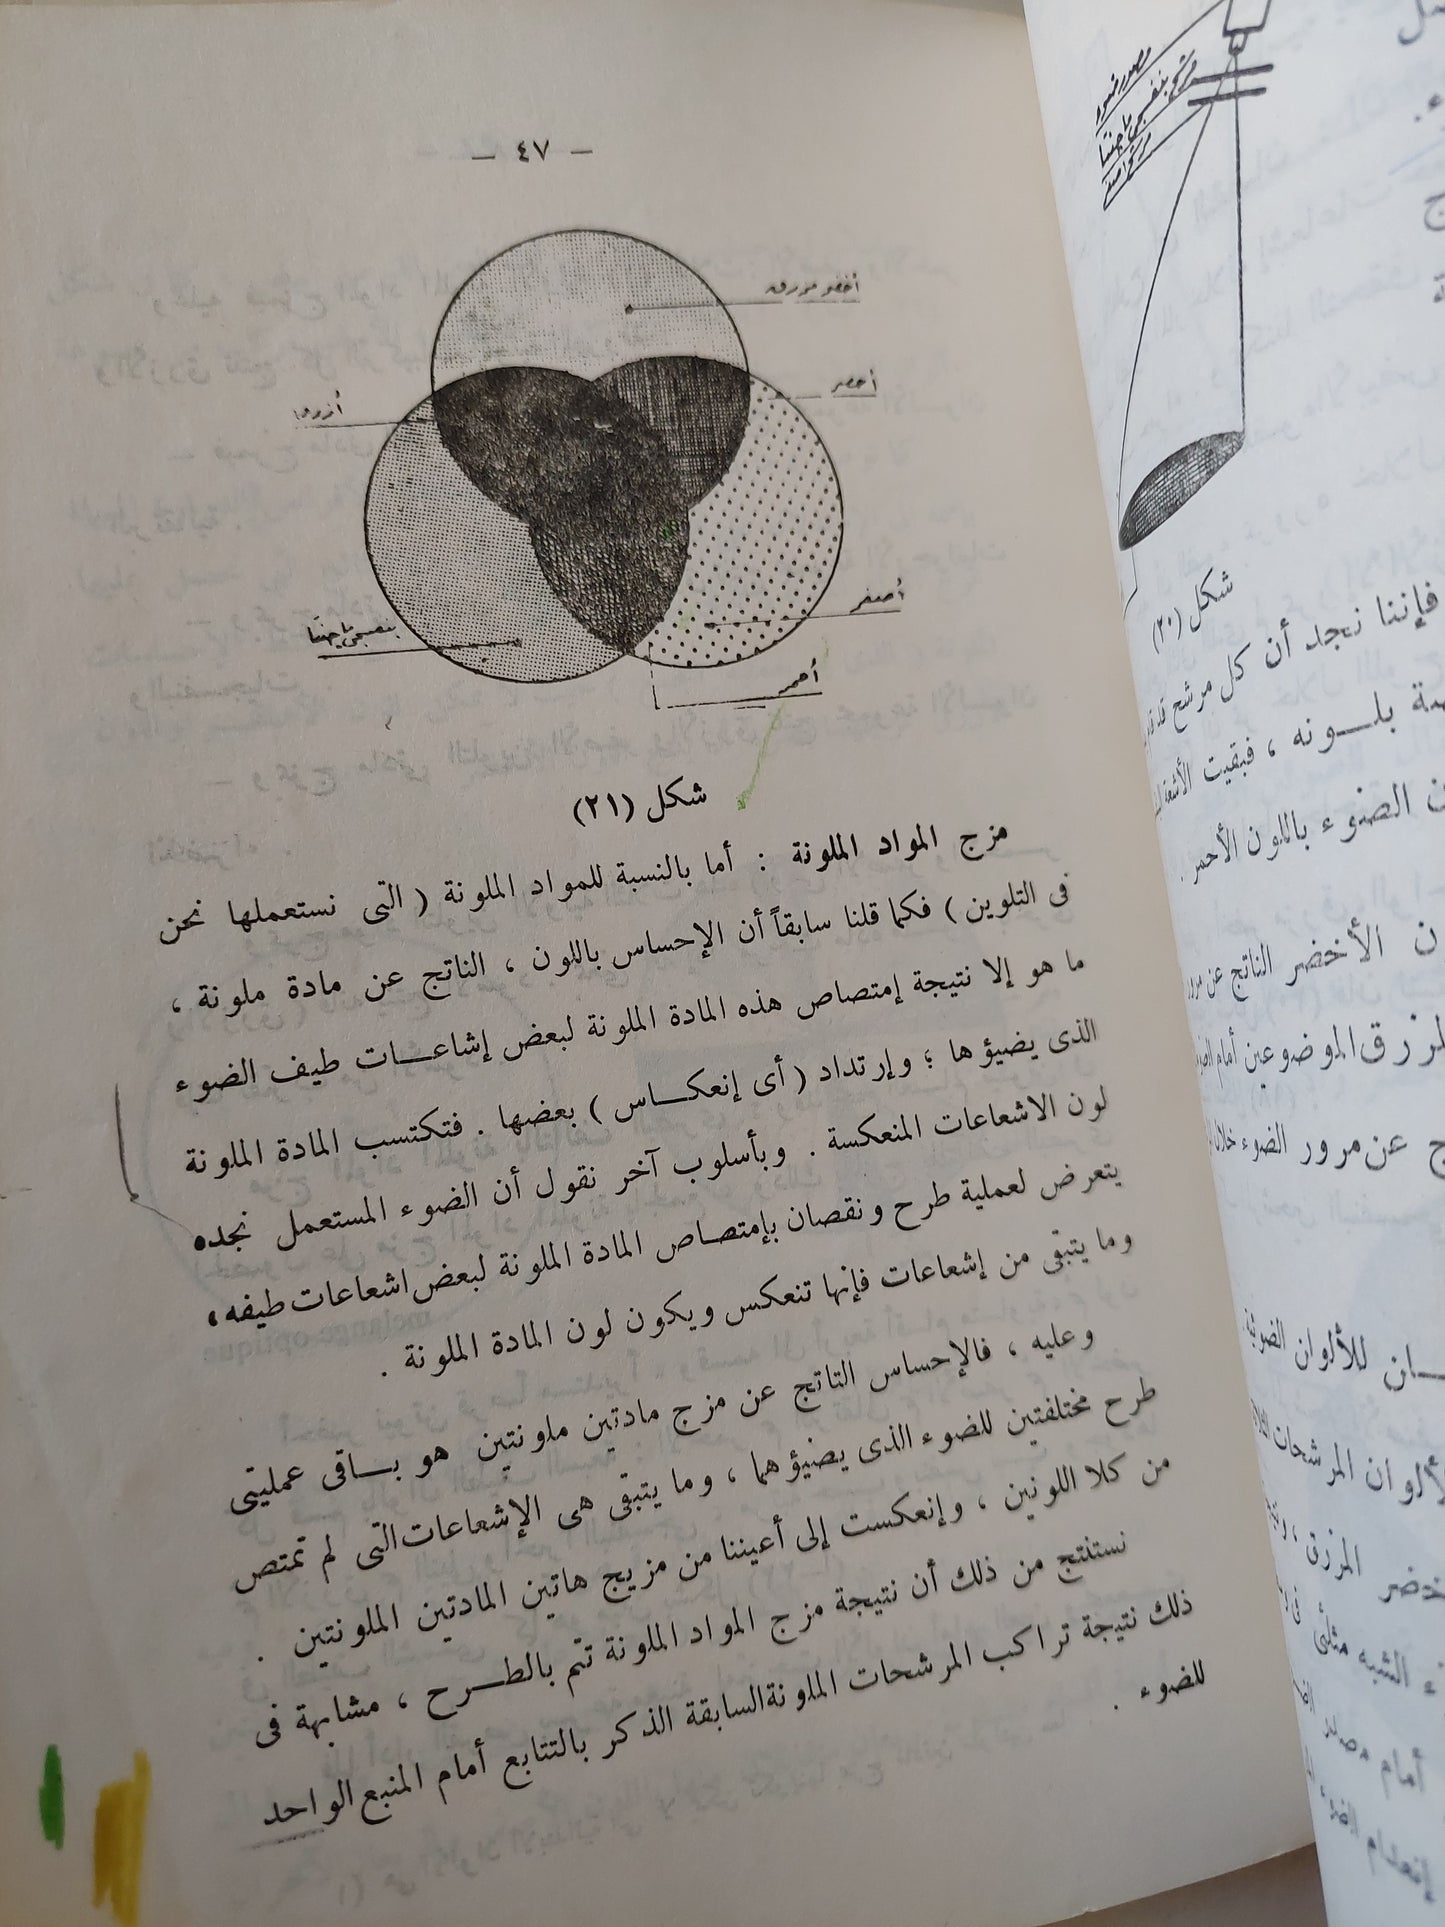 — ٤٧ —
أخضر مزرق
أخضر
أزرق
أصفر
بنفسجى ماجنتا
أحمر
شكل (٢١)
مزج المواد الملونة : أما بالنسبة للمواد الملونة ( التى نستعملها نحن
فى التلوين ) فكما قلنا سابقاً أن الإحساس باللون ، الناتج عن مادة ملونة ،
ما هو إلا نتيجة إمتصاص هذه المادة الملونة لبعض إشاعـات طيف الضوء
الذى يضيؤها ؛ وإرتداد ( أى إنعكـاس ) بعضها . فتكتسب المادة الملونة
لون الاشعاعات المنعكسة . وبأسلوب آخر نقول أن الضوء المستعمل نجده
يتعرض لعملية طرح ونقصان بإمتصاص المادة الملونة لبعض اشعاعات طيفه ،
وما يتبقى من إشعاعات فإنها تنعكس ويكون لون المادة الملونة .
وعليه ، فالإحساس التاتج عن مزج مادتين ملونتين هو بـاقى عمليتى
طرح مختلفتين للضوء الذى يضيؤهما ، وما يتبقى هى الإشعاعات التى لم تمتص
من كلا اللونين ، وإنعكست إلى أعيننا من مزيج هاتين المادتين الملونتين .
نستنتج من ذلك أن نتيجة مزج المواد الملونة تتم بالطـرح ، مشابهة فى
ذلك نتيجة تراكب المرشحات الملونة السابقة الذكر بالتتابع أمام المنبع الواحد
للضوء .
مرشح بنفسجى ماجنتا
مرشح أصفر
شكل (٢٠)
فإننا نجد أن كل مرشح
بلـونه ، فبقيت الأشعة
الضوء باللون الأحمر .
الأخضر الناتج عن مرور
الموضوعين أمام
عن مرور الضوء خلال
للألوان الضوئية
ألوان المرشحات
المزرق ،
الشبه
أمام مصدر